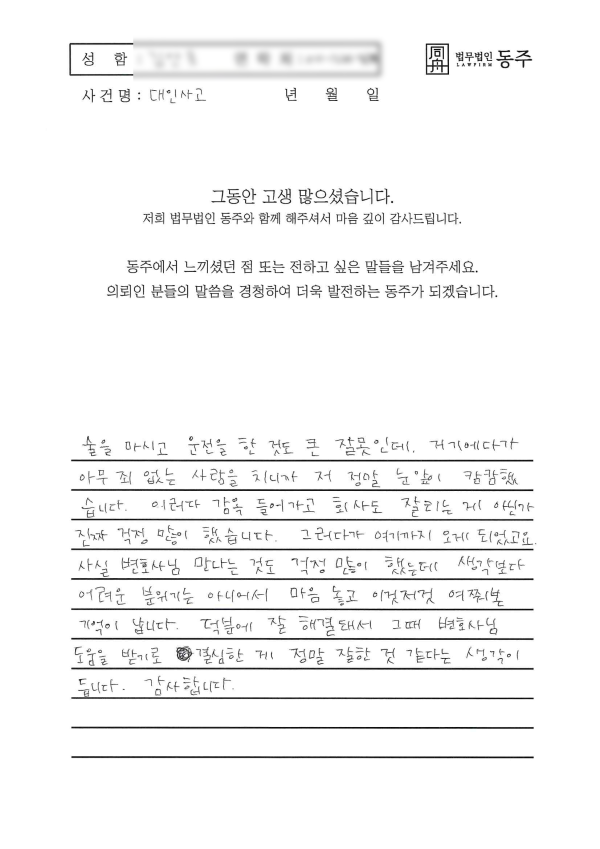 성 함 :
同舟 법무법인 동주
LAWFIRM
사 건 명 : 대인사고 년 월 일
그동안 고생 많으셨습니다.
저희 법무법인 동주와 함께 해주셔서 마음 깊이 감사드립니다.
동주에서 느끼셨던 점 또는 전하고 싶은 말들을 남겨주세요.
의뢰인 분들의 말씀을 경청하여 더욱 발전하는 동주가 되겠습니다.
술을 마시고 운전을 한 것도 큰 잘못인데. 거기에다가
아무 죄 없는 사람을 치니까 저 정말 눈앞이 캄캄했
습니다. 이러다 감옥 들어가고 회사도 잘리는 게 아닌가
진짜 걱정 많이 했습니다. 그러다가 여기까지 오게 되었고요.
사실 변호사님 만나는 것도 걱정 많이 했는데 생각보다
어려운 분위기는 아니어서 마음 놓고 이것저것 여쭤본
기억이 납니다. 덕분에 잘 해결돼서 그때 변호사님
도움을 받기로 결심한 게 정말 잘한 것 같다는 생각이
듭니다. 감사합니다.